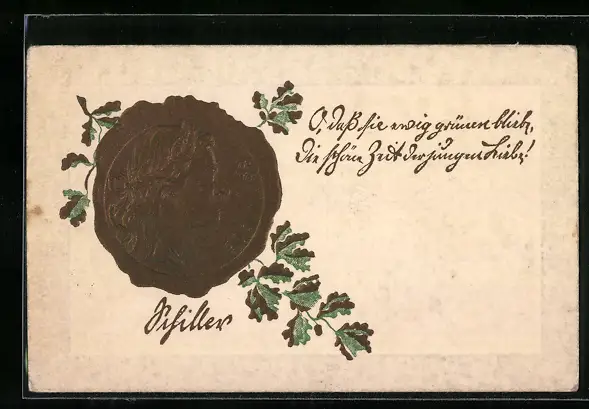 O, daß sie ewig grünen bliebe,
Die schöne Zeit der jungen Liebe!
Schiller